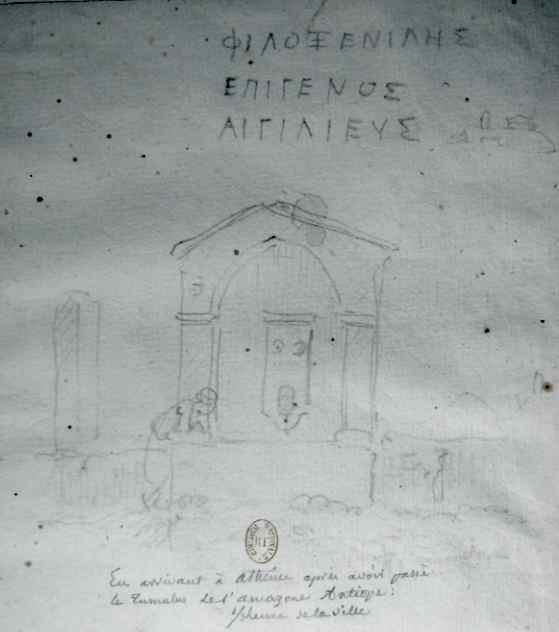 ΦΙΛΟΞΕΝΙΛΗΣ
ΕΠΙΓΕΝΟΣ
ΑΙΓΙΛΙΕΥΣ
En arrivant à Athènes après avoir passé
le Tumulus de l'amazone Antiope:
de la Ville